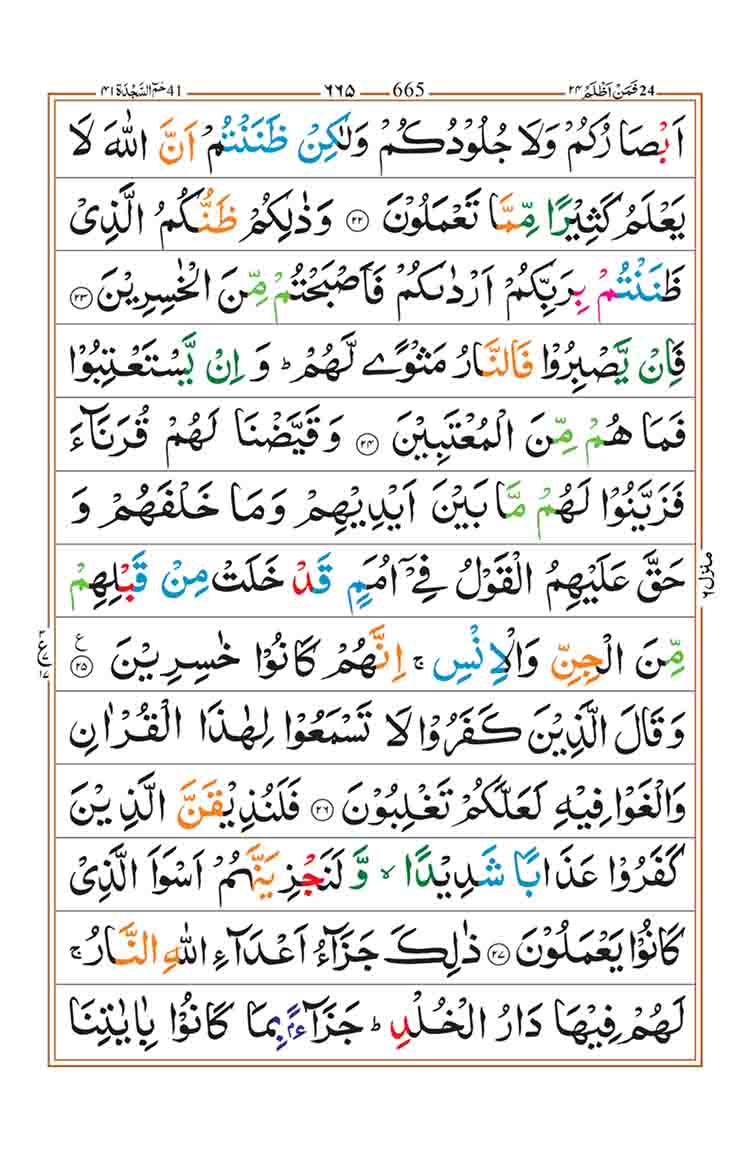 24 فَمَنْ اَظْلَمُ ۲۴ 665 ۶۶۵ 41 حٰمٓ السَّجْدَة ۴۱
اَبْصَارُكُمْ وَلَا جُلُوْدُكُمْ وَلٰكِنْ ظَنَنْتُمْ اَنَّ اللّٰهَ لَا
يَعْلَمُ كَثِيْرًا مِّمَّا تَعْمَلُوْنَ ۲۲ وَذٰلِكُمْ ظَنُّكُمُ الَّذِىْ
ظَنَنْتُمْ بِرَبِّكُمْ اَرْدٰىكُمْ فَاَصْبَحْتُمْ مِّنَ الْخٰسِرِيْنَ ۲۳
فَاِنْ يَّصْبِرُوْا فَالنَّارُ مَثْوًى لَّهُمْ ؕ وَ اِنْ يَّسْتَعْتِبُوْا
فَمَا هُمْ مِّنَ الْمُعْتَبِيْنَ ۲۴ وَقَيَّضْنَا لَهُمْ قُرَنَآءَ
فَزَيَّنُوْا لَهُمْ مَّا بَيْنَ اَيْدِيْهِمْ وَمَا خَلْفَهُمْ وَ
حَقَّ عَلَيْهِمُ الْقَوْلُ فِىْۤ اُمَمٍ قَدْ خَلَتْ مِنْ قَبْلِهِمْ
مِّنَ الْجِنِّ وَالْاِنْسِ ۚ اِنَّهُمْ كَانُوْا خٰسِرِيْنَ ۲۵ ع
وَقَالَ الَّذِيْنَ كَفَرُوْا لَا تَسْمَعُوْا لِهٰذَا الْقُرْاٰنِ
وَالْغَوْا فِيْهِ لَعَلَّكُمْ تَغْلِبُوْنَ ۲۶ فَلَنُذِيْقَنَّ الَّذِيْنَ
كَفَرُوْا عَذَابًا شَدِيْدًا ۙ وَّلَنَجْزِيَنَّهُمْ اَسْوَاَ الَّذِىْ
كَانُوْا يَعْمَلُوْنَ ۲۷ ذٰلِكَ جَزَآءُ اَعْدَآءِ اللّٰهِ النَّارُ ۚ
لَهُمْ فِيْهَا دَارُ الْخُلْدِ ؕ جَزَآءًۢ بِمَا كَانُوْا بِاٰيٰتِنَا
منزل ۶